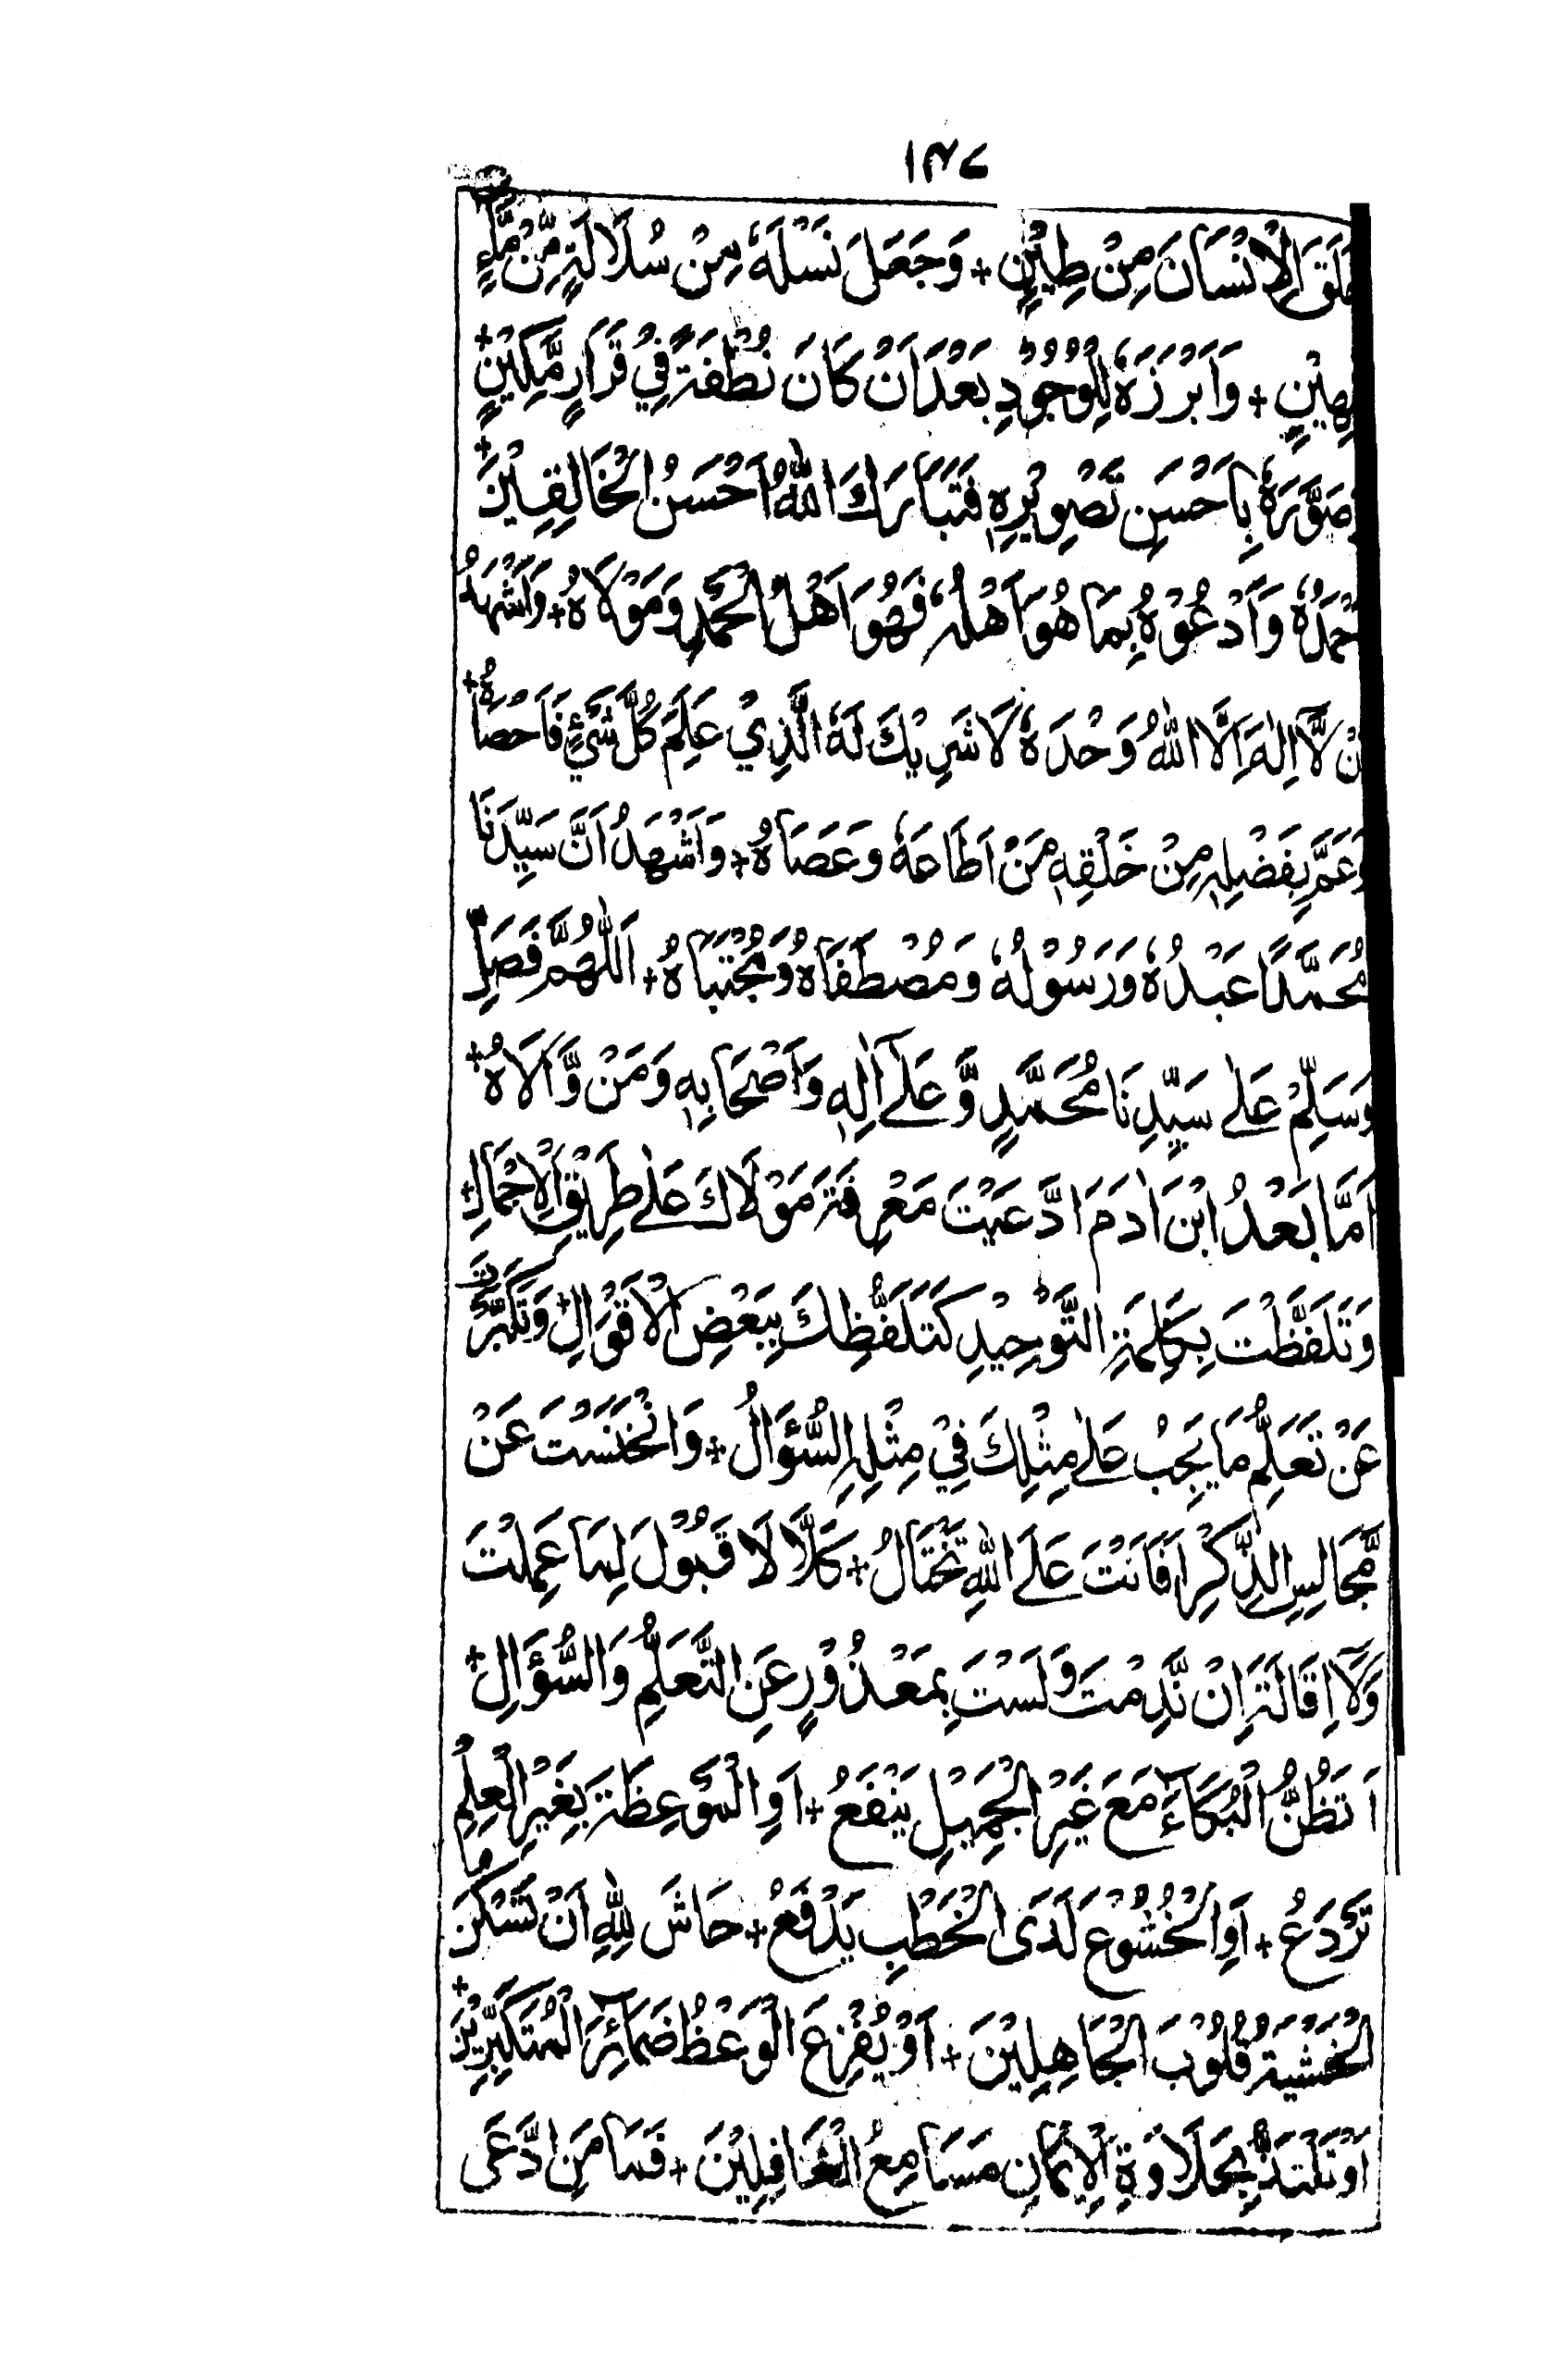 ١٣٧
خَلَقَ الْاِنْسَانَ مِنْ طِيْنٍ + وَجَعَلَ نَسْلَهٗ مِنْ سُلَالَةٍ مِّنْ مَّآءٍ
مَّهِيْنٍ + وَاَبْرَزَهٗ لِلْوُجُوْدِ بَعْدَ اَنْ كَانَ نُطْفَةً فِيْ قَرَارٍ مَّكِيْنٍ +
وَصَوَّرَهٗ بِاَحْسَنِ تَصْوِيْرِهٖ فَتَبَارَكَ اللّٰهُ اَحْسَنُ الْخَالِقِيْنَ +
اَحْمَدُهٗ وَاَدْعُوْهُ بِمَا هُوَ اَهْلُهٗ فَهُوَ اَهْلُ الْحَمْدِ وَمَوْلَاهُ + وَاَشْهَدُ
اَنْ لَّآ اِلٰهَ اِلَّا اللّٰهُ وَحْدَهٗ لَا شَرِيْكَ لَهٗ الَّذِيْ عَلِمَ كُلَّ شَيْءٍ فَاَحْصَاهُ +
وَعَمَّ بِفَضْلِهٖ مِنْ خَلْقِهٖ مَنْ اَطَاعَهٗ وَعَصَاهُ + وَاَشْهَدُ اَنَّ سَيِّدَنَا
مُحَمَّدًا عَبْدُهٗ وَرَسُوْلُهٗ وَمُصْطَفَاهُ وَمُجْتَبَاهُ + اَللّٰهُمَّ فَصَلِّ
وَسَلِّمْ عَلٰى سَيِّدِنَا مُحَمَّدٍ وَّعَلٰٓى اٰلِهٖ وَاَصْحَابِهٖ وَمَنْ وَّالَاهُ +
اَمَّا بَعْدُ ابْنَ اٰدَمَ ادَّعَيْتَ مَعْرِفَةَ مَوْلَاكَ عَلٰى طَرِيْقِ الْاِجْمَالِ +
وَتَلَفَّظْتَ بِكَلِمَةِ التَّوْحِيْدِ كَتَلَفُّظِكَ بِبَعْضِ الْاَقْوَالِ + وَتَكَبَّرْتَ
عَنْ تَعَلُّمِ مَا يَجِبُ عَلٰى مِثْلِكَ فِيْ مِثْلِهِ السُّؤَالُ + وَانْخَنَسْتَ عَنْ
مَّجَالِسِ الذِّكْرِ اَفَاَنْتَ عَلَى اللّٰهِ تَخْتَالُ + كَلَّا لَا قَبُوْلَ لِمَا عَمِلْتَ
وَلَآ اِقَالَةَ اِنْ نَّدِمْتَ وَلَسْتَ بِمَعْذُوْرٍ عَنِ التَّعَلُّمِ وَالسُّؤَالِ +
اَتَظُنُّ الْبُكَآءَ مَعَ غَيْرِ الْجَمِيْلِ يَنْفَعُ + اَوِ الْمَوْعِظَةَ بِغَيْرِ الْعِلْمِ
تَرْدَعُ + اَوِ الْخُشُوْعَ لَدَى الْخَطْبِ يَدْفَعُ + حَاشَ لِلّٰهِ اَنْ تَسْكُنَ
الْخَشْيَةُ قُلُوْبَ الْجَاهِلِيْنَ + اَوْ يُفْزِعَ الْوَعْظُ ضَمَآئِرَ الْمُتَكَبِّرِيْنَ +
اَوْ تَلْتَذَّ بِحَلَاوَةِ الْاِيْمَانِ مَسَامِعُ الْغَافِلِيْنَ + فَمَا مَنِ ادَّعٰى